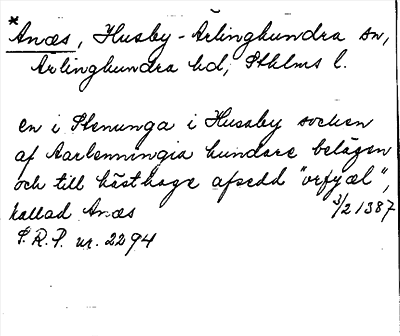 *
Anæs, Husby-Ärlinghundra sn,
Ärlinghundra hd, Sthlms l.
en i Stenunga i Husaby socken
af Aarbenningia hundare belägen
och till hästhage afsedd "orfyæl",
kallad Anæs 3/2 1387
S.R.P. nr. 2294